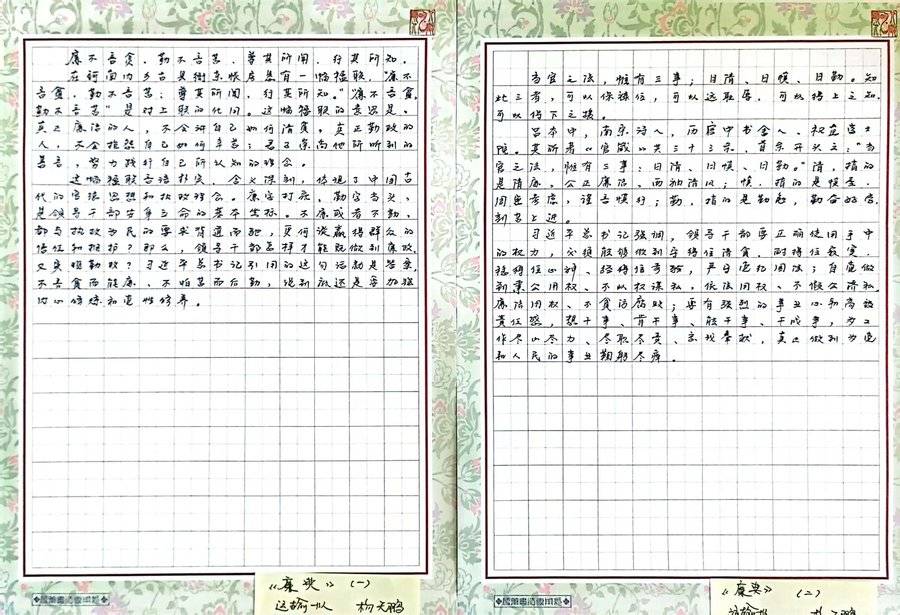 廉不言贫，勤不言苦，尊其所闻，行其所知。
在河南内乡古县衙东账房里有一幅楹联，“廉不
言贫，勤不言苦；尊其所闻，行其所知。”“廉不言贫，
勤不言苦”是对上联的化用。这幅楹联的意思是，
真正廉洁的人，不会讲自己如何清贫，真正勤政的
人，不会抱怨自己如何辛苦；君子崇尚他所听到的
善言，努力践行自己所认知的理念。
这幅楹联言语朴实，含义深刻，体现了中国古
代的官德思想和执政理念。廉字打底，勤字当头，
是领导干部安身立命的基本坐标。不廉或者不勤，
都与执政为民的要求背道而驰，更何谈赢得群众的
信任和拥护？那么，领导干部怎样才能既做到廉政
又实现勤政？习近平总书记引用的这句话就是答案，
不言贫而能廉，不怕苦而后勤，说到底还是要加强
内心修炼和党性修养。
《廉奖》（一）
运输一队 杨天鹏
当官之法，惟有三事：日清、日慎、日勤。知
此三者，可以保禄位，可以远耻辱，可以得上之知，
可以得下之援。
吕本中，南宋诗人，历官中书舍人、权直学士
院。其所著《官箴》共三十三条，首条开头之：“当
官之法，惟有三事：日清、日慎、日勤。”清，指的
是清廉，公正廉洁、两袖清风；慎，指的是慎重，
周密考虑，谨言慎行；勤，指的是勤勉，勤奋努力，
刻苦上进。
习近平总书记强调，领导干部要正确使用手中
的权力，必须能够做到守得住清贫，耐得住寂寞，
稳得住心神，经得住考验，严守党纪国法；自觉做
到秉公用权、不以权谋私，依法用权、不假公济私，
廉洁用权、不贪污腐败；要有强烈的事业心和高度
责任感，想干事、肯干事、能干事、干成事，为工
作尽心尽力、尽职尽责、忘我奉献，真正做到为党
和人民的事业鞠躬尽瘁。
《廉奖》（二）